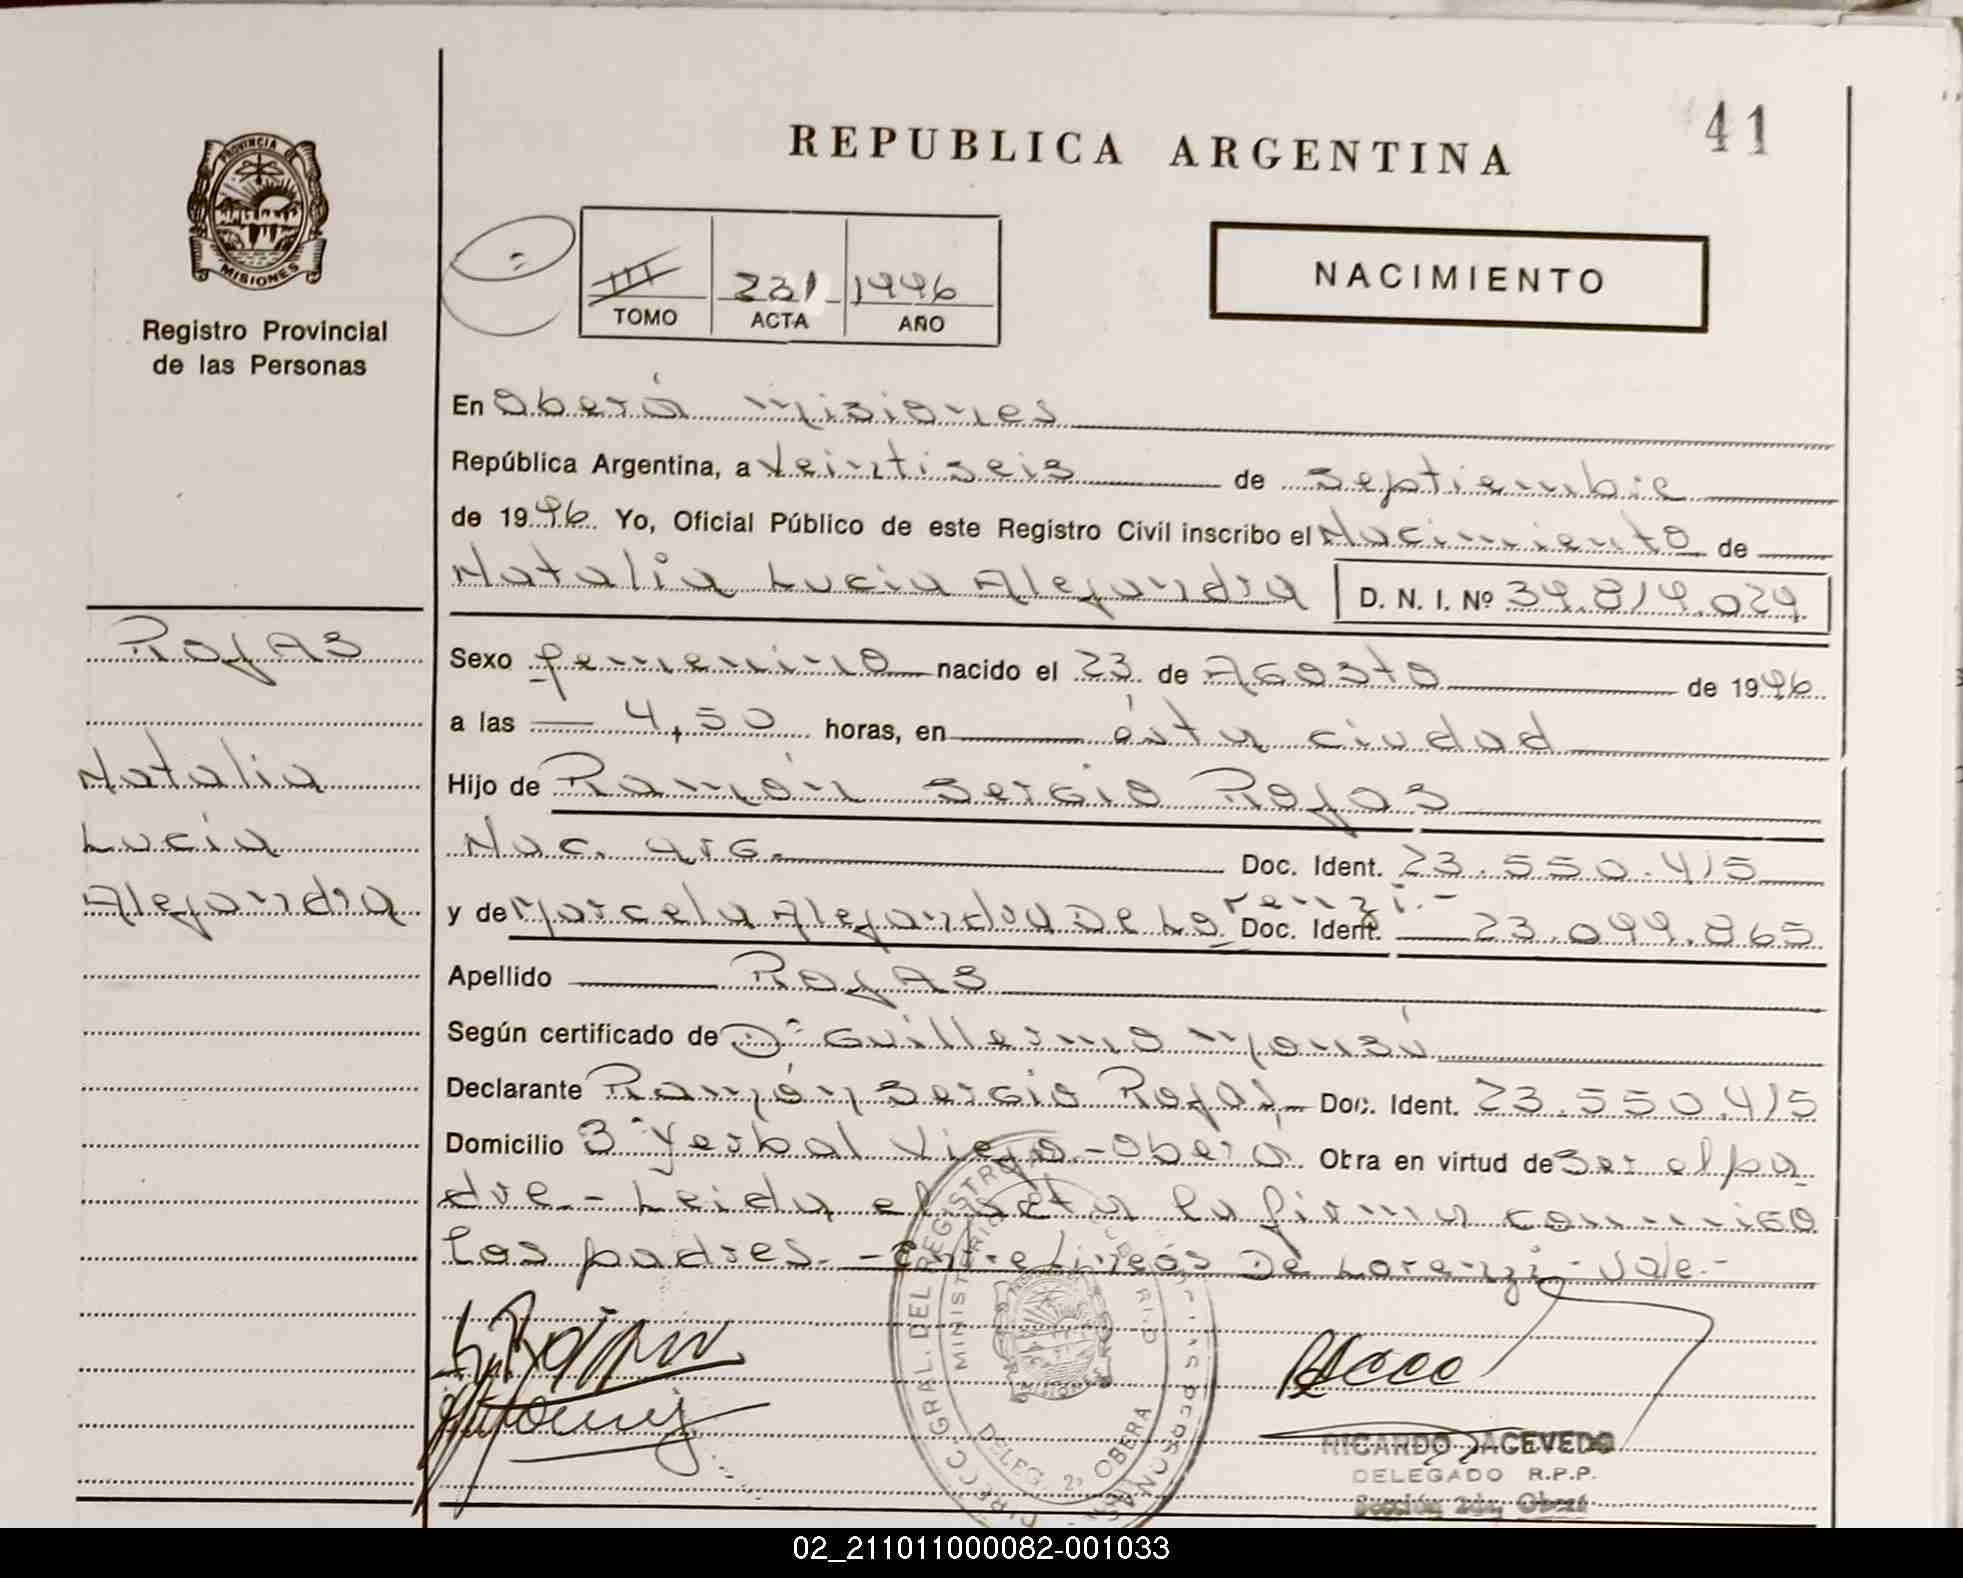 41
REPUBLICA ARGENTINA
PROVINCIA DE
MISIONES
Registro Provincial
de las Personas
III 231 1996
TOMO ACTA AÑO
NACIMIENTO
En Oberá Misiones
República Argentina, a Veintiseis de Septiembre
de 1996. Yo, Oficial Público de este Registro Civil inscribo el Nacimiento de
Natalia Lucia Alejandra D. N. I. Nº 39.819.029.
ROJAS
Natalia
Lucia
Alejandra
Sexo femenino nacido el 23 de Agosto de 1996
a las 4,50 horas, en ésta ciudad
Hijo de Ramón Sergio Rojas
Nac. arg. Doc. Ident. 23.550.415
y de Marcela Alejandra De Lorenzi.- Doc. Ident. 23.099.865
Apellido ROJAS
Según certificado de Dr Guillermo Monzú
Declarante Ramón Sergio Rojas Doc. Ident. 23.550.415
Domicilio 3ª Yerbal Viejo - Oberá Obra en virtud de ser el pa
dre - Leida el acta la firma conmigo
los padres. - Entre Lineas De Lorenzi - Vale.-
DIRECC. GRAL. DEL REGISTRO
MINISTERIO
DELEG. 2ª OBERA
RICARDO ACEVEDO
DELEGADO R.P.P.
Sección 2da, Oberá
02_211011000082-001033